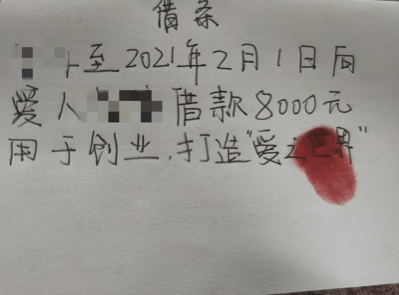 借条
至2021年2月1日向
爱人 借款8000元
用于创业,打造"爱之世界"